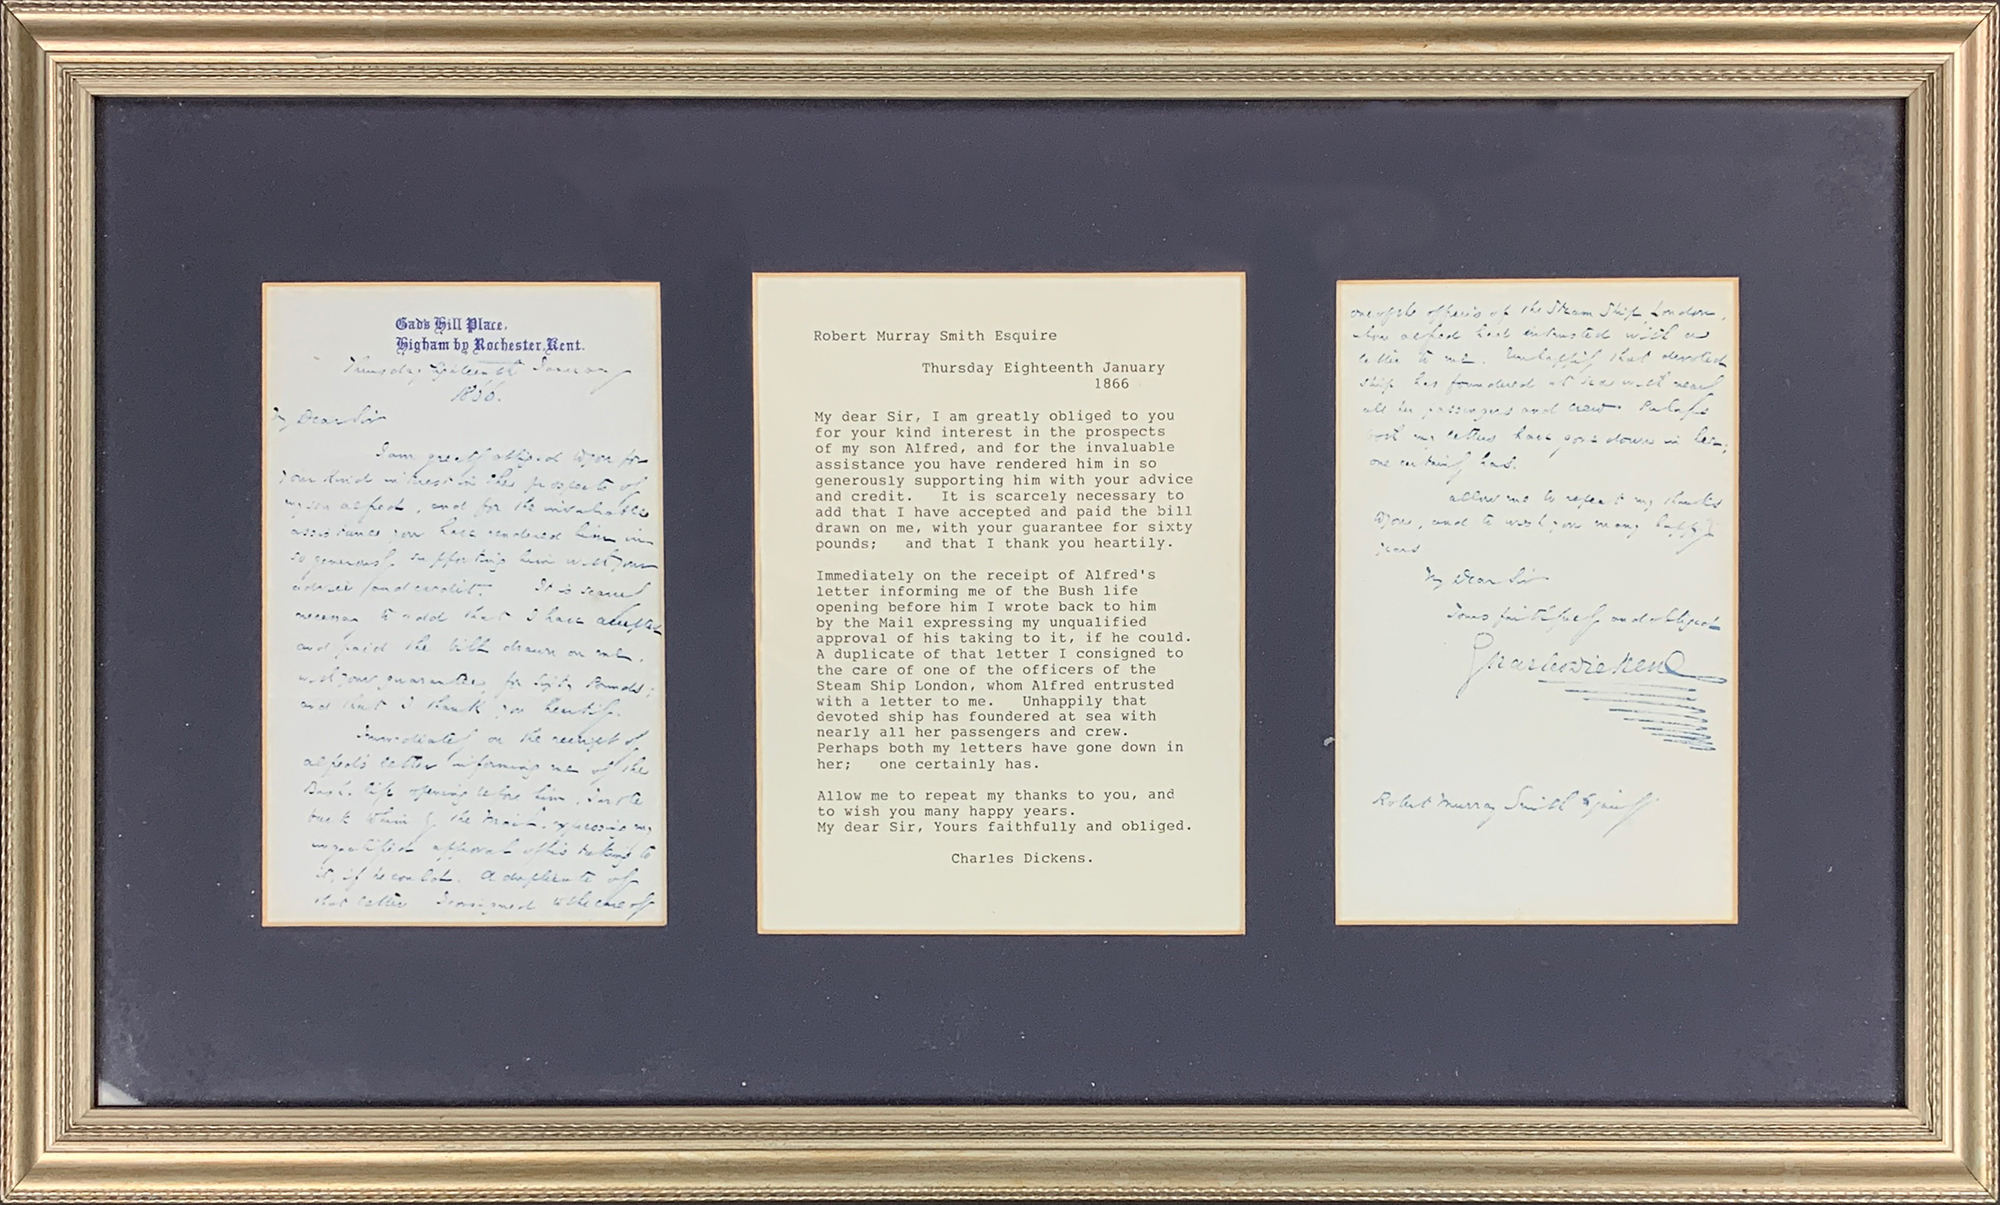 Gad's Hill Place,
Higham by Rochester, Kent.
Thursday Eighteenth January
1866.
My Dear Sir
I am greatly obliged to you for
your kind interest in the prospects of
my son Alfred, and for the invaluable
assistance you have rendered him in
so generously supporting him with your
advice and credit. It is scarcely
necessary to add that I have accepted
and paid the bill drawn on me,
with your guarantee, for Sixty Pounds;
and that I thank you heartily.
Immediately on the receipt of
Alfred's letter informing me of the
Bush life opening before him, I wrote
back to him by the Mail, expressing my
unqualified approval of his taking to
it, if he could. A duplicate of
that letter I consigned to the care of
Robert Murray Smith Esquire
Thursday Eighteenth January
1866
My dear Sir, I am greatly obliged to you
for your kind interest in the prospects
of my son Alfred, and for the invaluable
assistance you have rendered him in so
generously supporting him with your advice
and credit. It is scarcely necessary to
add that I have accepted and paid the bill
drawn on me, with your guarantee for sixty
pounds; and that I thank you heartily.
Immediately on the receipt of Alfred's
letter informing me of the Bush life
opening before him I wrote back to him
by the Mail expressing my unqualified
approval of his taking to it, if he could.
A duplicate of that letter I consigned to
the care of one of the officers of the
Steam Ship London, whom Alfred entrusted
with a letter to me. Unhappily that
devoted ship has foundered at sea with
nearly all her passengers and crew.
Perhaps both my letters have gone down in
her; one certainly has.
Allow me to repeat my thanks to you, and
to wish you many happy years.
My dear Sir, Yours faithfully and obliged.
Charles Dickens.
one of the officers of the Steam Ship London,
whom Alfred had entrusted with a
letter to me. Unhappily that devoted
ship has foundered at sea with nearly
all her passengers and crew. Perhaps
both my letters have gone down in her;
one certainly has.
Allow me to repeat my thanks
to you, and to wish you many happy
years
My Dear Sir
Yours faithfully and obliged
Charles Dickens
Robert Murray Smith Esquire